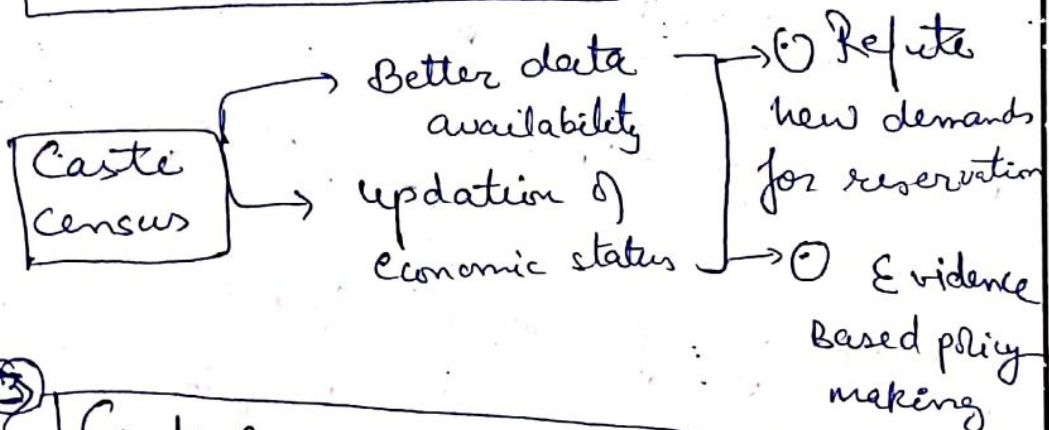 Caste
census
Better data
availability
updation of
economic status
Refute
new demands
for reservation
Evidence
Based policy
making
3